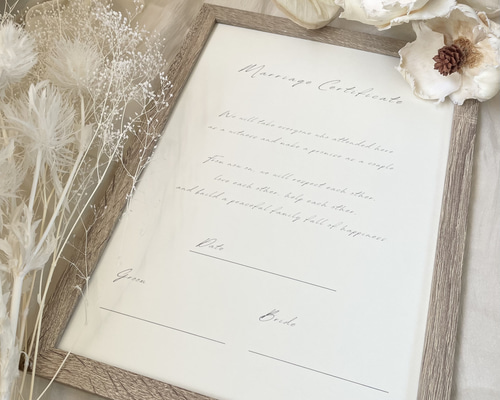 Marriage Certificate
We will take everyone who attended here
as a witness and make a promise as a couple
From now on, we will respect each other
love each other, help each other.
and build a peaceful family full of happiness
Date
Groom
Bride